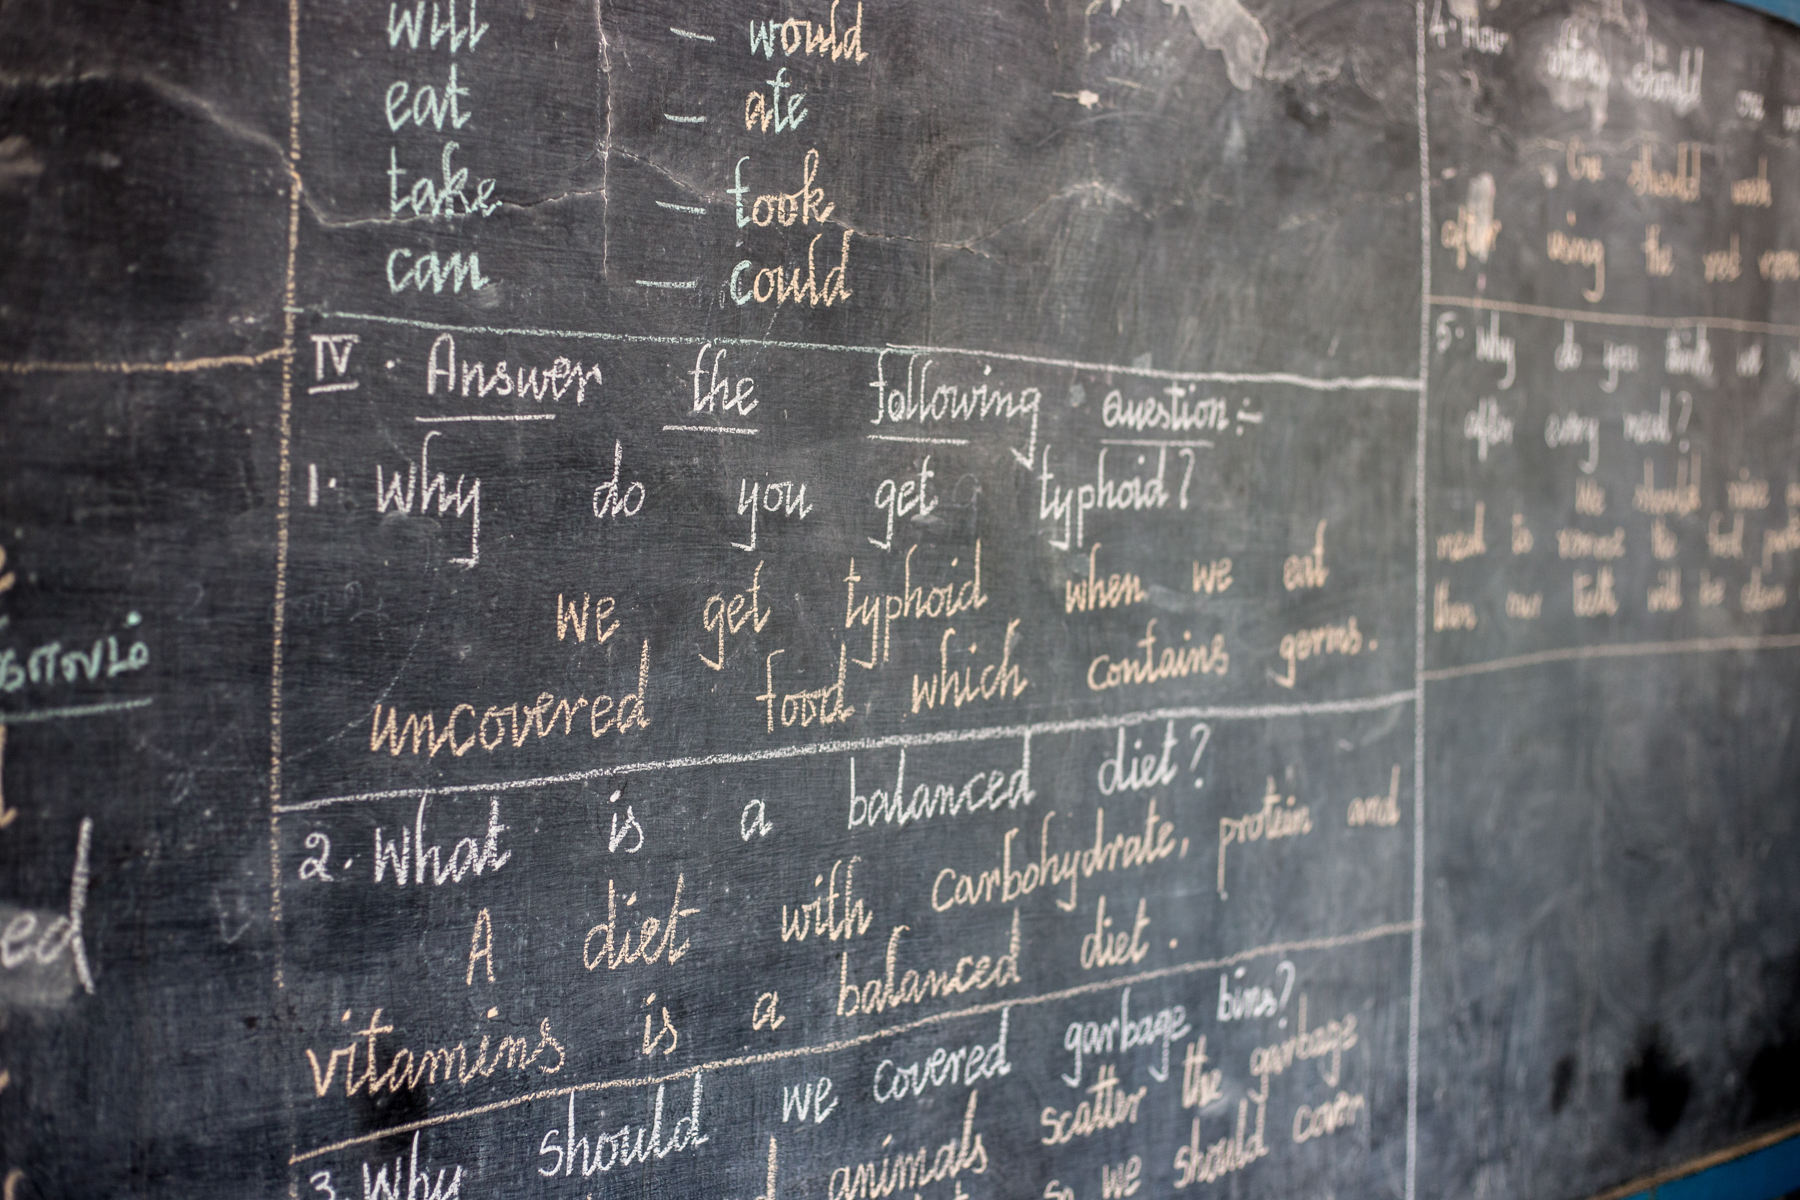 will – would
eat – ate
take – took
can – could
IV. Answer the following question:-
1. Why do you get typhoid?
we get typhoid when we eat
uncovered food which contains germs.
2. What is a balanced diet?
A diet with carbohydrate, protein and
vitamins is a balanced diet.
3. Why should we covered garbage bins?
animals scatter the garbage
so we should cover
4. How should
should wash
after using the rest
5. Why do you think we
after every meal?
We should rinse
meal to remove the food
then, our teeth will be clean
ed